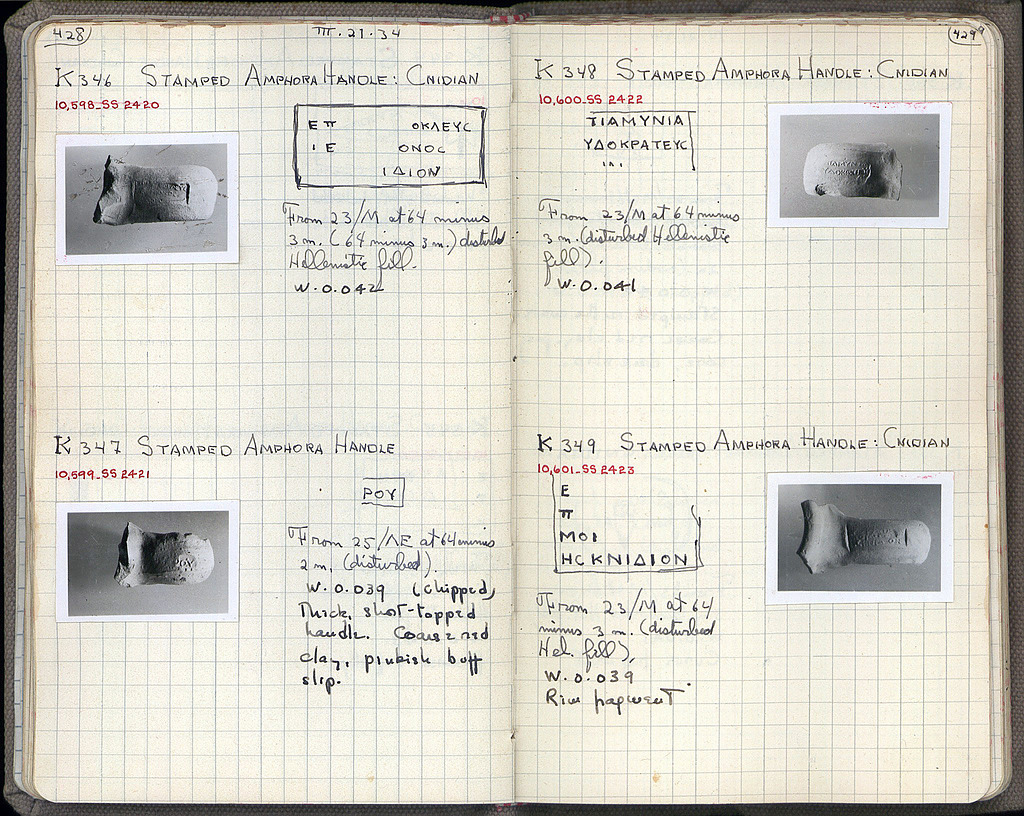 428
III.21.34
K 346 STAMPED AMPHORA HANDLE: CNIDIAN
10,598_SS 2420
ΕΠ ΟΚΛΕΥC
Ι Ε ΟΝΟC
ΙΔΙΟΝ
From 23/Μ at 64 minus
3 m. (64 minus 3 m.) disturbed
Hellenistic fill.
W. 0.042
K 347 STAMPED AMPHORA HANDLE
10,599_SS 2421
ΡΟΥ
From 25/ΛΕ at 64 minus
2 m. (disturbed).
W. 0.039 (chipped)
Thick, short-topped
handle. Coarse red
clay, pinkish buff
slip.
429
K 348 STAMPED AMPHORA HANDLE: CNIDIAN
10,600_SS 2422
ΤΙΑΜΥΝΙΑ
ΥΔΟΚΡΑΤΕΥC
From 23/Μ at 64 minus
3 m. (disturbed Hellenistic
fill).
W. 0.041
K 349 STAMPED AMPHORA HANDLE: CNIDIAN
10,601_SS 2423
Ε
Π
ΜΟΙ
ΗCΚΝΙΔΙΟΝ
From 23/Μ at 64
minus 3 m. (disturbed
Hel. fill).
W. 0.039
Rim fragment